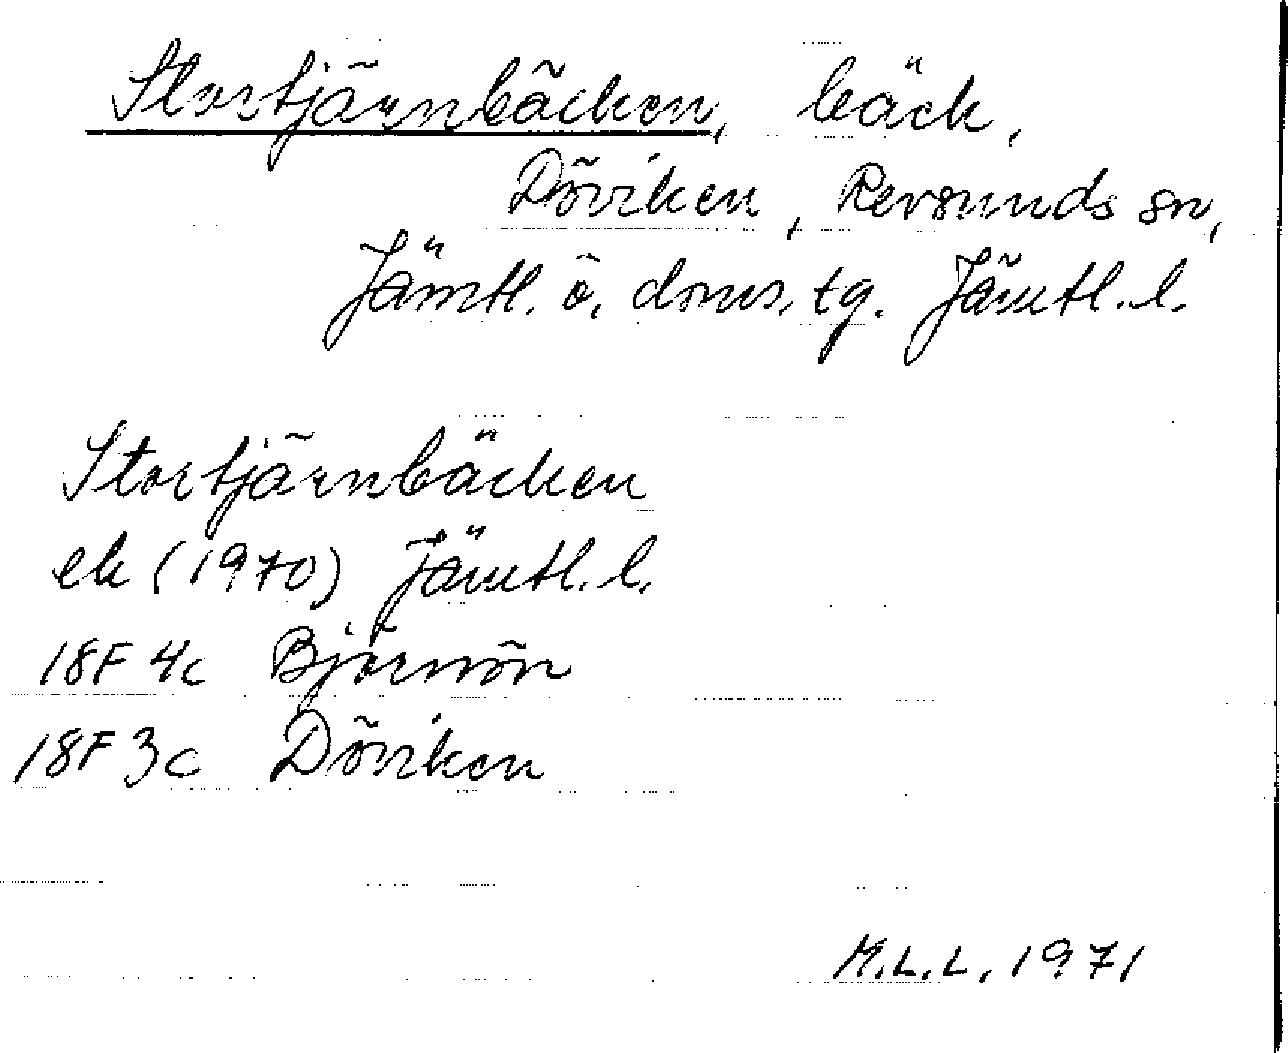 Stortjärnbäcken, bäck,
Döviken, Revsunds sn,
Jämtl. ö. doms. tg. Jämtl. l.
Stortjärnbäcken
ek (1970) Jämtl. l.
18F 4c Björnön
18F 3c Döviken
M.L.L. 1971